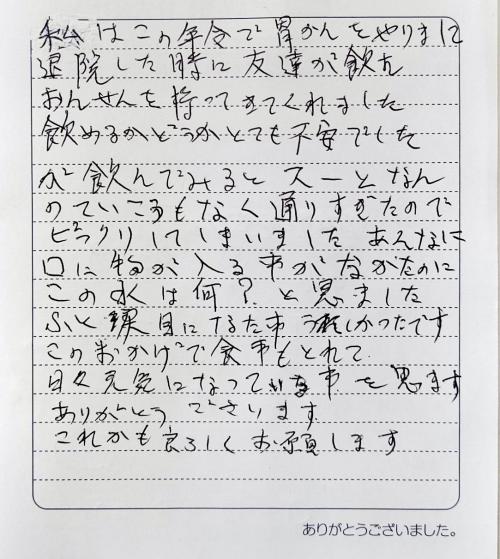 私はこの年令で胃がんをやりまして
退院した時に友達が飲む
おんせんを持ってきてくれました
飲めるかどうかとても不安でした
が飲んでみるとスーとなん
のていこうもなく通りすぎたので
ビックリしてしまいました あんなに
口に物が入る事がなかたのに
この水は何？と思ました
ふと 目になるた事 嬉しかったです
このおかげで食事もとれて
日々元気になっている事を思ます
ありがとうございます
これかも良ろしくお願します
ありがとうございました。